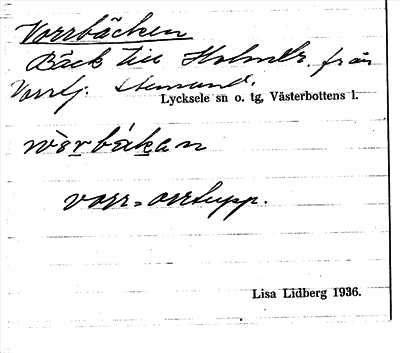 Vorrbäcken
Bäck till Holmtr. från
Vorrtj.
Lycksele sn o. tg, Västerbottens l.
vorr = orrtupp.
Lisa Lidberg 1936.